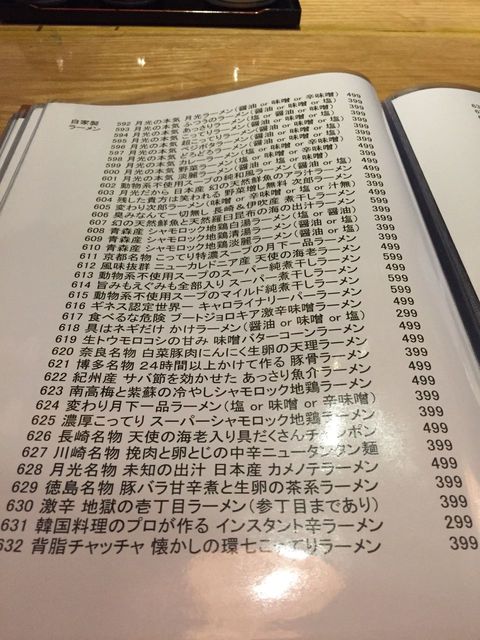 自家製
ラーメン
592 月光の本気 月光ラーメン(醤油 or 味噌 or 辛味噌) 499
593 月光の本気 ふつうのラーメン(醤油 or 味噌 or 塩) 399
594 月光の本気 あっさりラーメン
595 月光の本気 こってりラーメン
596 月光の本気 超こってりラーメン
597 月光の本気 ベジポタラーメン
598 月光の本気 どろどろラーメン
599 月光の
600 月光の 野菜ラーメン
601 月光の 激辛ラーメン
602 動物系不使用スープの純和風ラーメン(醤油 or 塩)
603 月光だから 日本産 幻の天然鮮魚のアラ汁ラーメン
604 残した貴方は笑われる 野菜増し無料 次郎ラーメン
605 変わり次郎ラーメン(味噌 or 辛味噌 or 塩 or 汁無)
606 臭みなんて一切無し 長崎&伊吹産 煮干しラーメン
607 幻の天然鮮魚と天然羅臼昆布の海の出汁ラーメン
608 青森産 シャモロック地鶏白湯ラーメン(塩 or 醤油)
609 青森産 シャモロック地鶏清湯ラーメン(醤油 or 塩)
610 青森産 シャモロック地鶏淡麗ラーメン(醤油 or 塩)
611 京都名物 こってり特濃スープの月下一品ラーメン
612 風味抜群 ニューカレドニア産 天使の海老ラーメン 499
613 動物系不使用スープのスーパー純煮干しラーメン 599
614 旨みもえぐみも全部入り スーパー煮干しラーメン 499
615 動物系不使用スープのマイルド純煮干しラーメン 399
616 ギネス認定世界一 キャロライナリーパーラーメン 499
617 食べるな危険 ブートジョロキア激辛味噌ラーメン 499
618 具はネギだけ かけラーメン(醤油 or 味噌 or 塩) 299
619 生トウモロコシの甘み 味噌バターコーンラーメン 499
620 奈良名物 白菜豚肉にんにく生卵の天理ラーメン 399
621 博多名物 24時間以上かけて作る 豚骨ラーメン 499
622 紀州産 サバ節を効かせた あっさり魚介ラーメン 499
623 南高梅と紫蘇の冷やしシャモロック地鶏ラーメン 499
624 変わり月下一品ラーメン(塩 or 味噌 or 辛味噌) 399
625 濃厚こってり スーパーシャモロック地鶏ラーメン 499
626 長崎名物 天使の海老入り具だくさんチャンポン 499
627 川崎名物 挽肉と卵とじの中辛ニュータンタン麺 399
628 月光名物 未知の出汁 日本産 カメノテラーメン 499
629 徳島名物 豚バラ甘辛煮と生卵の茶系ラーメン 399
630 激辛 地獄の壱丁目ラーメン(参丁目まであり) 399
631 韓国料理のプロが作る インスタント辛ラーメン 299
632 背脂チャッチャ 懐かしの環七こってりラーメン 399